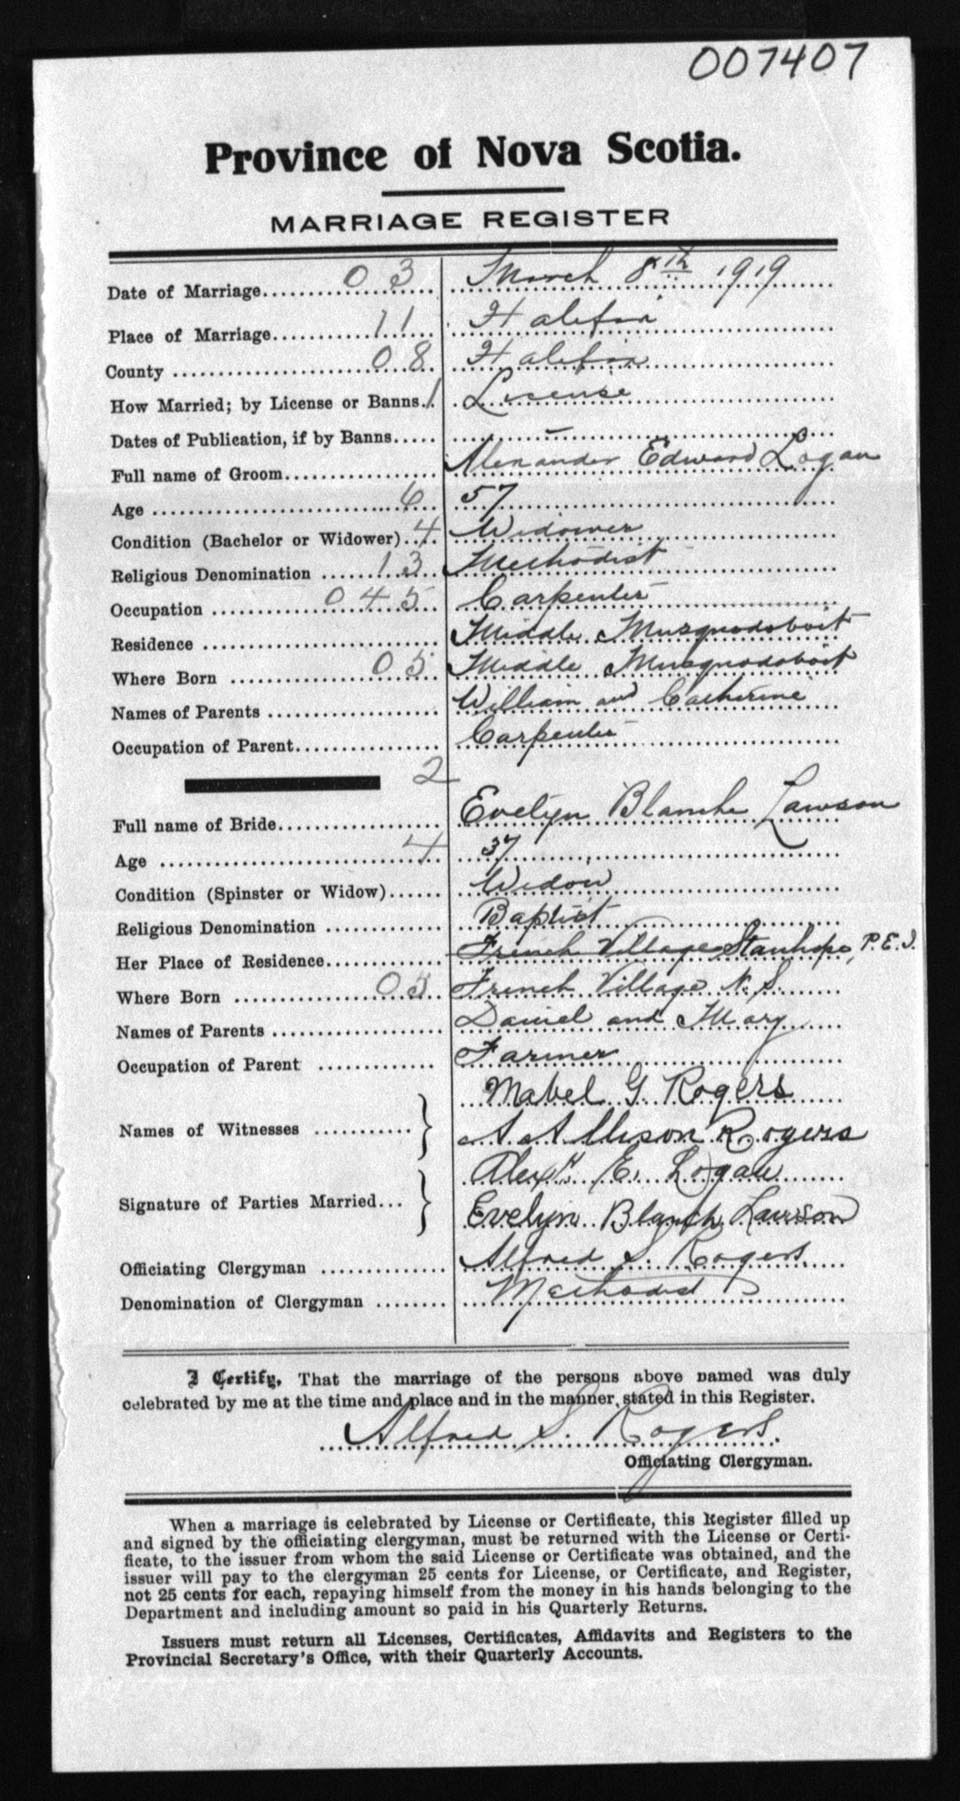 007407
Province of Nova Scotia.
MARRIAGE REGISTER
Date of Marriage 03 March 8th 1919
Place of Marriage 11 Halifax
County 08 Halifax
How Married; by License or Banns 1 License
Dates of Publication, if by Banns –
Full name of Groom Alexander Edward Logan
Age 6 57
Condition (Bachelor or Widower) 4 Widower
Religious Denomination 13 Methodist
Occupation 045 Carpenter
Residence Middle Musquodoboit
Where Born 05 Middle Musquodoboit
Names of Parents William and Catherine
Occupation of Parent Carpenter
2
Full name of Bride Evelyn Blanche Lawson
Age 4 37
Condition (Spinster or Widow) Widow
Religious Denomination Baptist
Her Place of Residence French Village Stanhope, P.E.I.
Where Born 05 French Village N.S.
Names of Parents Daniel and Mary
Occupation of Parent Farmer
Names of Witnesses Mabel G Rogers
A. Allison Rogers
Signature of Parties Married Alexr E. Logan
Evelyn Blanch Lawson
Officiating Clergyman Alfred S. Rogers
Denomination of Clergyman Methodist
I Certify, That the marriage of the persons above named was duly
celebrated by me at the time and place and in the manner stated in this Register.
Alfred S. Rogers.
Officiating Clergyman.
When a marriage is celebrated by License or Certificate, this Register filled up
and signed by the officiating clergyman, must be returned with the License or Certi-
ficate, to the issuer from whom the said License or Certificate was obtained, and the
issuer will pay to the clergyman 25 cents for License, or Certificate, and Register,
not 25 cents for each, repaying himself from the money in his hands belonging to the
Department and including amount so paid in his Quarterly Returns.
Issuers must return all Licenses, Certificates, Affidavits and Registers to the
Provincial Secretary's Office, with their Quarterly Accounts.